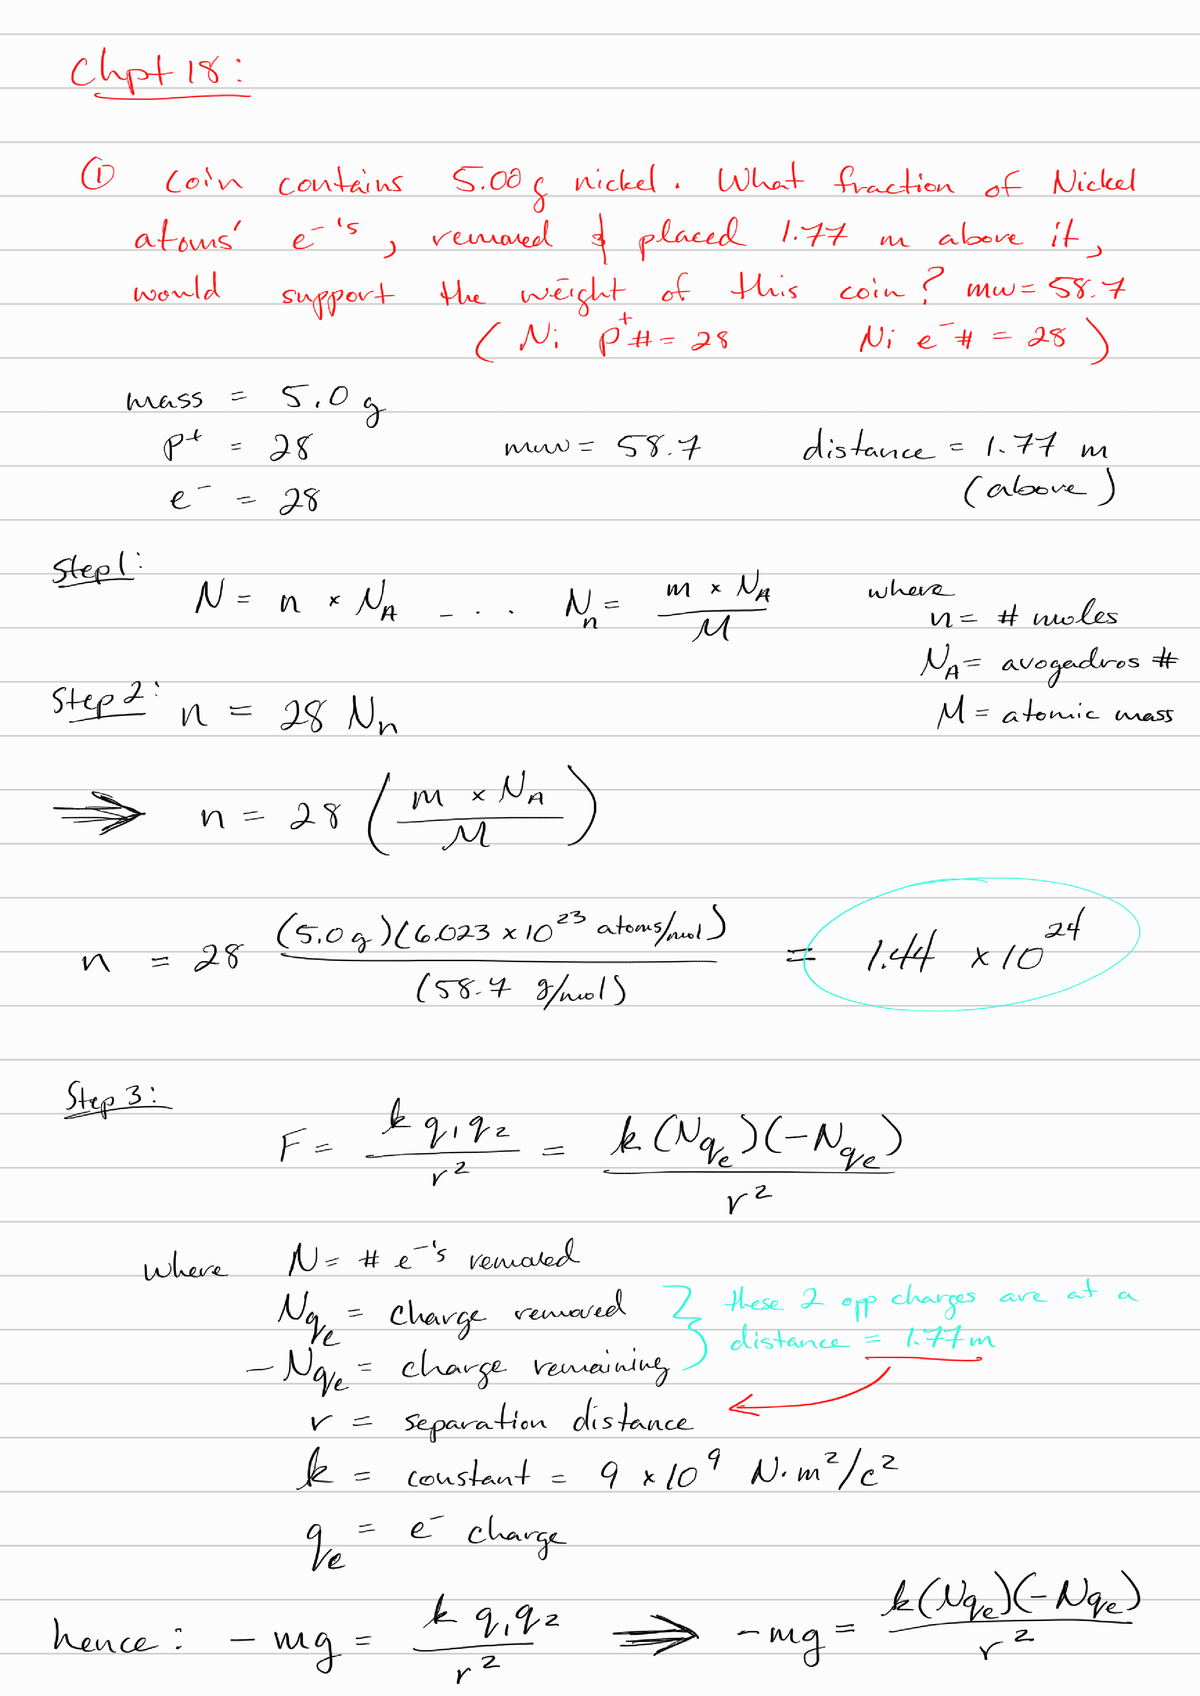 Chpt 18:
① Coin contains 5.00 g nickel. What fraction of Nickel
atoms' e⁻'s, removed & placed 1.77 m above it,
would support the weight of this coin? mw = 58.7
(Ni p⁺# = 28 Ni e⁻# = 28)
mass = 5.0 g
p⁺ = 28 mw = 58.7 distance = 1.77 m
e⁻ = 28 (above)
Step 1:
N = n × N_A - . . . N_n = (m × N_A)/M where
n = # moles
N_A = avogadros #
Step 2: n = 28 N_n M = atomic mass
⇒ n = 28 ((m × N_A)/M)
n = 28 (5.0 g)(6.023 × 10²³ atoms/mol)/(58.7 g/mol) = 1.44 × 10²⁴
Step 3:
F = k q₁q₂/r² = k(Nq_e)(-Nq_e)/r²
where N = # e⁻'s removed
Nq_e = charge removed } these 2 opp charges are at a
distance = 1.77m
-Nq_e = charge remaining
r = separation distance
k = constant = 9 × 10⁹ N·m²/c²
q_e = e⁻ charge
hence: -mg = k q₁q₂/r² ⇒ -mg = k(Nq_e)(-Nq_e)/r²